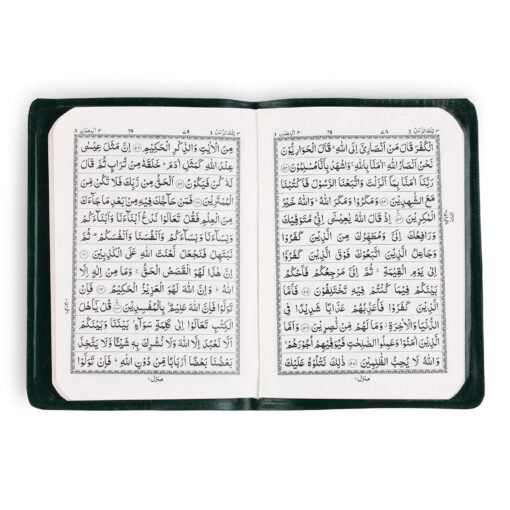 تِلْكَ الرُّسُلُ ٣
٧٨
اٰلِ عِمْرٰن ٣
الْكُفْرَ قَالَ مَنْ اَنْصَارِيْۤ اِلَى اللّٰهِ ؕ قَالَ الْحَوَارِيُّوْنَ
نَحْنُ اَنْصَارُ اللّٰهِ ۚ اٰمَنَّا بِاللّٰهِ ۚ وَاشْهَدْ بِاَنَّا مُسْلِمُوْنَ ﴿۵۲﴾
رَبَّنَاۤ اٰمَنَّا بِمَاۤ اَنْزَلْتَ وَاتَّبَعْنَا الرَّسُوْلَ فَاكْتُبْنَا
مَعَ الشّٰهِدِيْنَ ﴿۵۳﴾ وَمَكَرُوْا وَمَكَرَ اللّٰهُ ؕ وَاللّٰهُ خَيْرُ
الْمٰكِرِيْنَ ﴿۵۴﴾ اِذْ قَالَ اللّٰهُ يٰعِيْسٰۤى اِنِّيْ مُتَوَفِّيْكَ
وَرَافِعُكَ اِلَيَّ وَمُطَهِّرُكَ مِنَ الَّذِيْنَ كَفَرُوْا
وَجَاعِلُ الَّذِيْنَ اتَّبَعُوْكَ فَوْقَ الَّذِيْنَ كَفَرُوْۤا
اِلٰى يَوْمِ الْقِيٰمَةِ ۚ ثُمَّ اِلَيَّ مَرْجِعُكُمْ فَاَحْكُمُ
بَيْنَكُمْ فِيْمَا كُنْتُمْ فِيْهِ تَخْتَلِفُوْنَ ﴿۵۵﴾ فَاَمَّا
الَّذِيْنَ كَفَرُوْا فَاُعَذِّبُهُمْ عَذَابًا شَدِيْدًا فِي
الدُّنْيَا وَالْاٰخِرَةِ ؗ وَمَا لَهُمْ مِّنْ نّٰصِرِيْنَ ﴿۵۶﴾ وَاَمَّا
الَّذِيْنَ اٰمَنُوْا وَعَمِلُوا الصّٰلِحٰتِ فَيُوَفِّيْهِمْ اُجُوْرَهُمْ ؕ
وَاللّٰهُ لَا يُحِبُّ الظّٰلِمِيْنَ ﴿۵۷﴾ ذٰلِكَ نَتْلُوْهُ عَلَيْكَ
منزل ١
تِلْكَ الرُّسُلُ ٣
٧٩
اٰلِ عِمْرٰن ٣
مِنَ الْاٰيٰتِ وَالذِّكْرِ الْحَكِيْمِ ﴿۵۸﴾ اِنَّ مَثَلَ عِيْسٰى
عِنْدَ اللّٰهِ كَمَثَلِ اٰدَمَ ؕ خَلَقَهٗ مِنْ تُرَابٍ ثُمَّ قَالَ
لَهٗ كُنْ فَيَكُوْنُ ﴿۵۹﴾ اَلْحَقُّ مِنْ رَّبِّكَ فَلَا تَكُنْ مِّنَ
الْمُمْتَرِيْنَ ﴿۶۰﴾ فَمَنْ حَآجَّكَ فِيْهِ مِنْۢ بَعْدِ مَا جَآءَكَ
مِنَ الْعِلْمِ فَقُلْ تَعَالَوْا نَدْعُ اَبْنَآءَنَا وَاَبْنَآءَكُمْ
وَنِسَآءَنَا وَنِسَآءَكُمْ وَاَنْفُسَنَا وَاَنْفُسَكُمْ ۫ ثُمَّ
نَبْتَهِلْ فَنَجْعَلْ لَّعْنَتَ اللّٰهِ عَلَى الْكٰذِبِيْنَ ﴿۶۱﴾
اِنَّ هٰذَا لَهُوَ الْقَصَصُ الْحَقُّ ۚ وَمَا مِنْ اِلٰهٍ اِلَّا
اللّٰهُ ؕ وَاِنَّ اللّٰهَ لَهُوَ الْعَزِيْزُ الْحَكِيْمُ ﴿۶۲﴾ فَاِنْ
تَوَلَّوْا فَاِنَّ اللّٰهَ عَلِيْمٌۢ بِالْمُفْسِدِيْنَ ﴿۶۳﴾ قُلْ يٰۤاَهْلَ
الْكِتٰبِ تَعَالَوْا اِلٰى كَلِمَةٍ سَوَآءٍۢ بَيْنَنَا وَبَيْنَكُمْ
اَلَّا نَعْبُدَ اِلَّا اللّٰهَ وَلَا نُشْرِكَ بِهٖ شَيْـًٔا وَّلَا يَتَّخِذَ
بَعْضُنَا بَعْضًا اَرْبَابًا مِّنْ دُوْنِ اللّٰهِ ؕ فَاِنْ تَوَلَّوْا
منزل ١